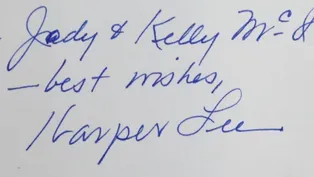 Jody & Kelly
—best wishes,
Harper Lee